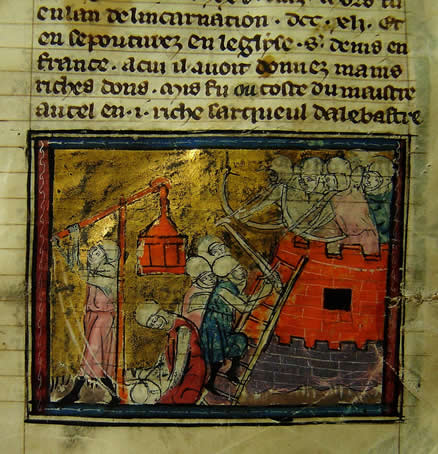 eulan delincarnation · dcc · xli · Et
en sepouturez en leglyse · s · denis en
france · acui il auoit donnez mains
riches dons · Mis fu ou coste du maistre
autel en · i · riche sarqueul dalebastre